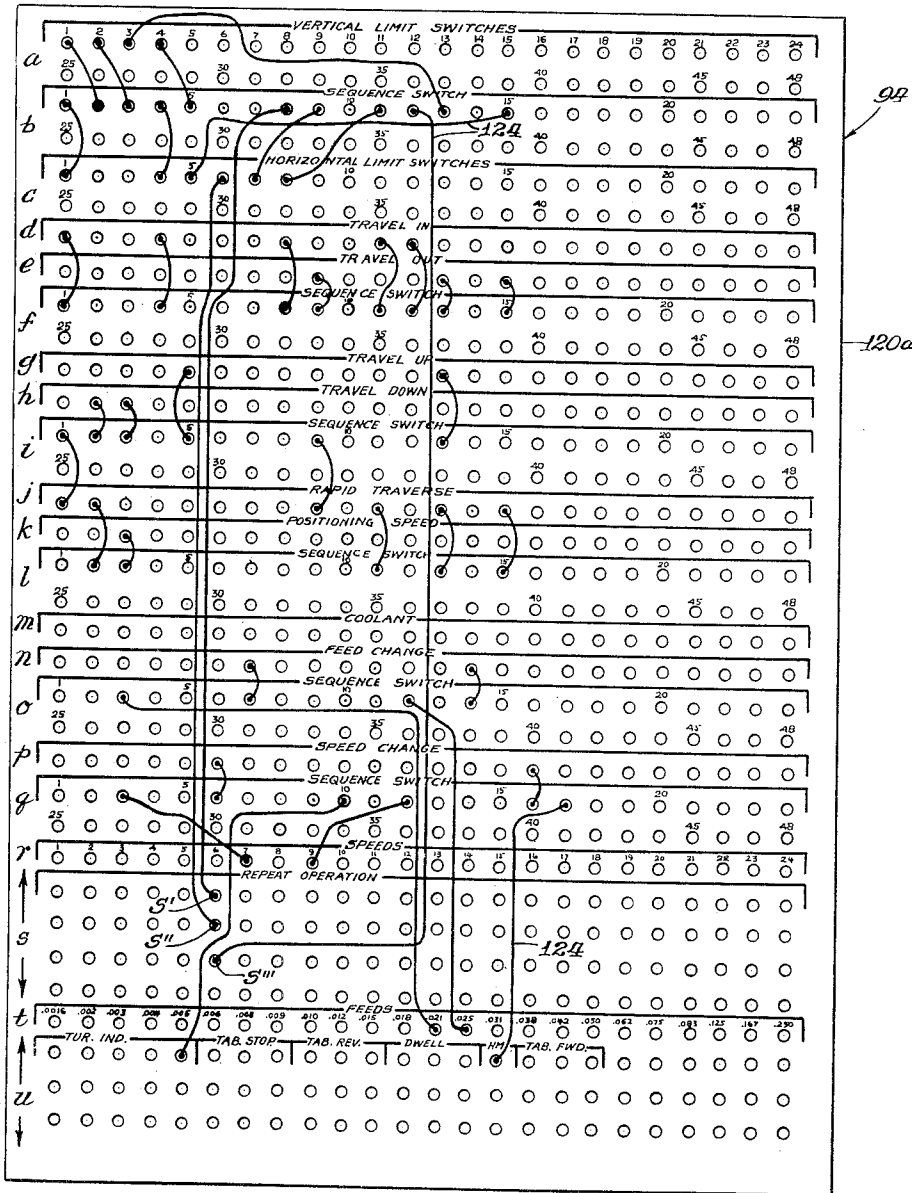 VERTICAL LIMIT SWITCHES
1 2 3 4 5 6 7 8 9 10 11 12 13 14 15 16 17 18 19 20 21 22 23 24
a
25 30 35 40 45 48
SEQUENCE SWITCH
94
1 5 10 15 20
b
124
25 30 35 40 45 48
HORIZONTAL LIMIT SWITCHES
1 5 10 15 20
c
25 30 35 40 45 48
d
TRAVEL IN
e
TRAVEL OUT
SEQUENCE SWITCH
1 5 10 15 20
f
25 30 35 40 45 48
120a
g
TRAVEL UP
h
TRAVEL DOWN
SEQUENCE SWITCH
1 5 10 15 20
i
25 30 35 40 45 48
j
RAPID TRAVERSE
k
POSITIONING SPEED
SEQUENCE SWITCH
l
1 5 10 15 20
25 30 35 40 45 48
m
COOLANT
n
FEED CHANGE
SEQUENCE SWITCH
o
1 5 10 15 20
25 30 35 40 45 48
p
SPEED CHANGE
SEQUENCE SWITCH
q
1 5 10 15 20
25 30 35 40 45 48
r
SPEEDS
1 2 3 4 5 6 7 8 9 10 11 12 13 14 15 16 17 18 19 20 21 22 23 24
REPEAT OPERATION
S'
s
S''
124
S'''
FEEDS
t
.0016 .002 .003 .004 .005 .006 .008 .009 .010 .012 .015 .018 .021 .025 .031 .038 .042 .050 .062 .075 .083 .125 .167 .250
TUR. IND. TAB. STOP TAB. REV. DWELL HM TAB. FWD.
u